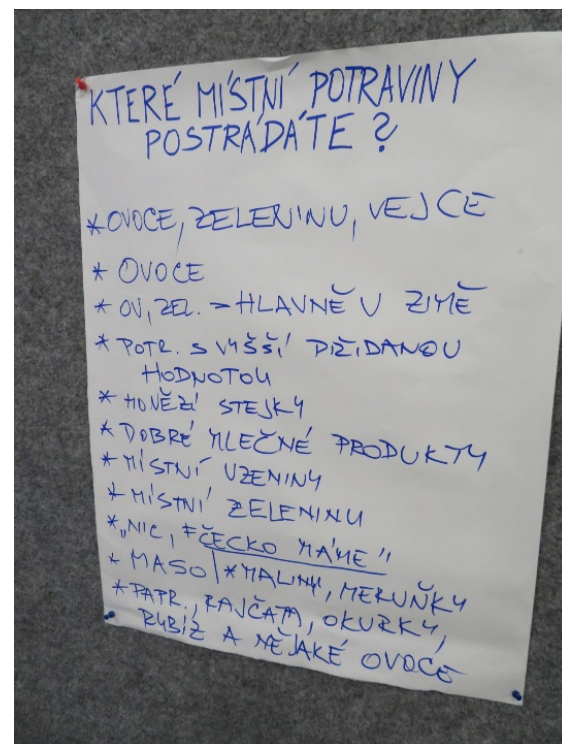 KTERÉ MÍSTNÍ POTRAVINY
POSTRÁDÁTE ?
* OVOCE, ZELENINU, VEJCE
* OVOCE
* OV, ZEL. - HLAVNĚ V ZIMĚ
* POTR. S VYŠŠÍ PŘIDANOU
HODNOTOU
* HOVĚZÍ STEJKY
* DOBRÉ MLEČNÉ PRODUKTY
* MÍSTNÍ UZENINY
* MÍSTNÍ ZELENINU
* „NIC, MÁME"
* MASO | * MALINY, MERUŇKY
* PAPR., RAJČATA, OKURKY,
RYBÍZ A NĚJAKÉ OVOCE